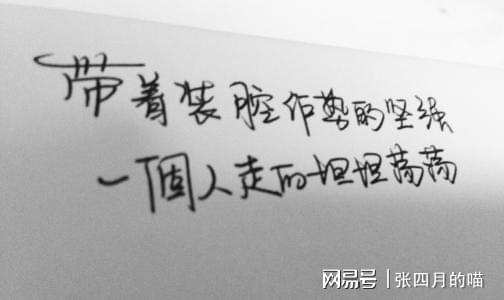 带着装腔作势的坚强
一個人走的坦坦荡荡
网易号 | 张四月的喵